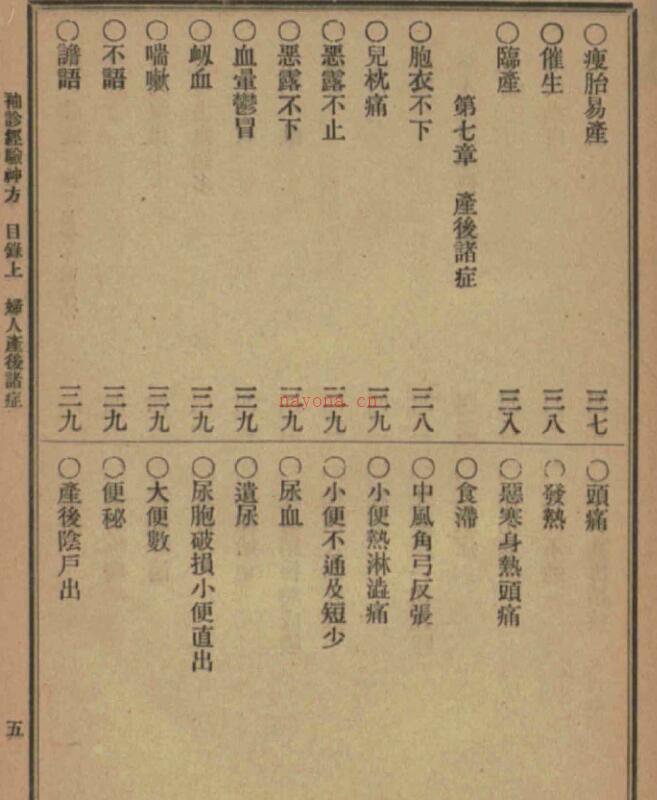 ○瘦胎易產 三七
○催生 三八
○臨產 三八
第七章 產後諸症
○胞衣不下 三八
○兒枕痛 三九
○惡露不止 三九
○惡露不下 三九
○血暈鬱冒 三九
○衂血 三九
○喘嗽 三九
○不語 三九
○譫語 三九
○頭痛
○發熱
○惡寒身熱頭痛
○食滯
○中風角弓反張
○小便熱淋澁痛
○小便不通及短少
○尿血
○遺尿
○尿胞破損小便直出
○大便數
○便秘
○產後陰戶出
袖診經驗神方 目錄上 婦人產後諸症 五
nayona.cn